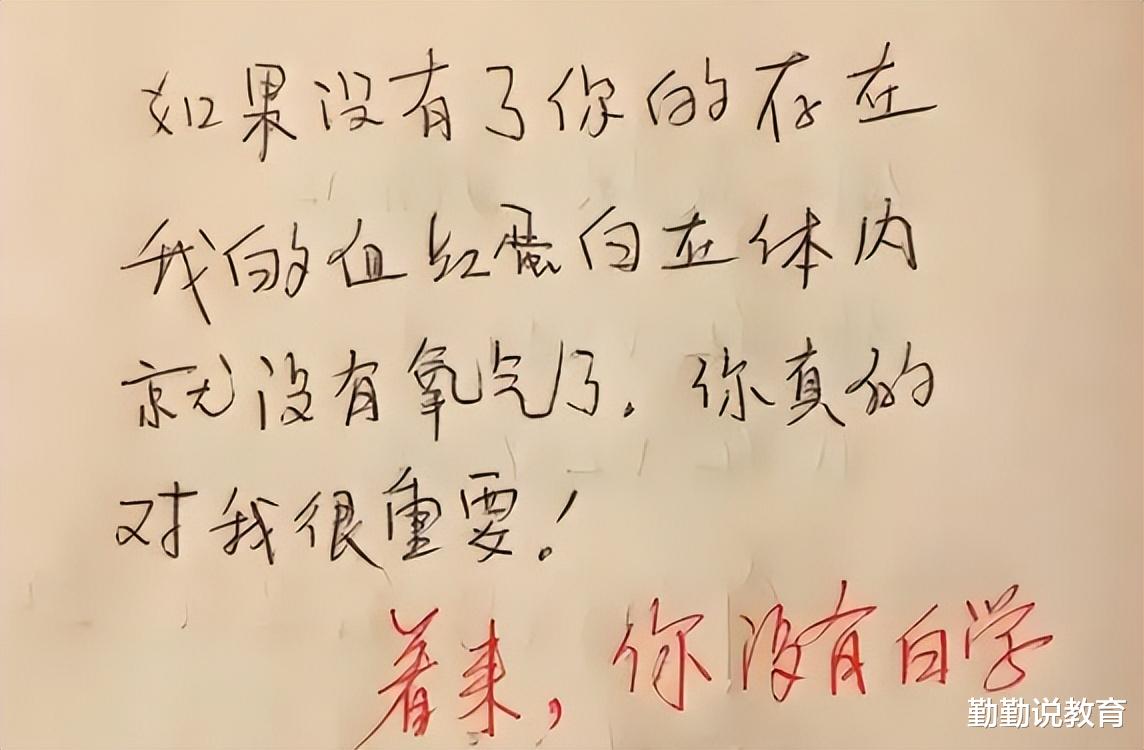 如果没有了你的存在
我的血红蛋白在体内
就没有氧气了.你真的
对我很重要!
看来,你没有白学
勤勤说教育